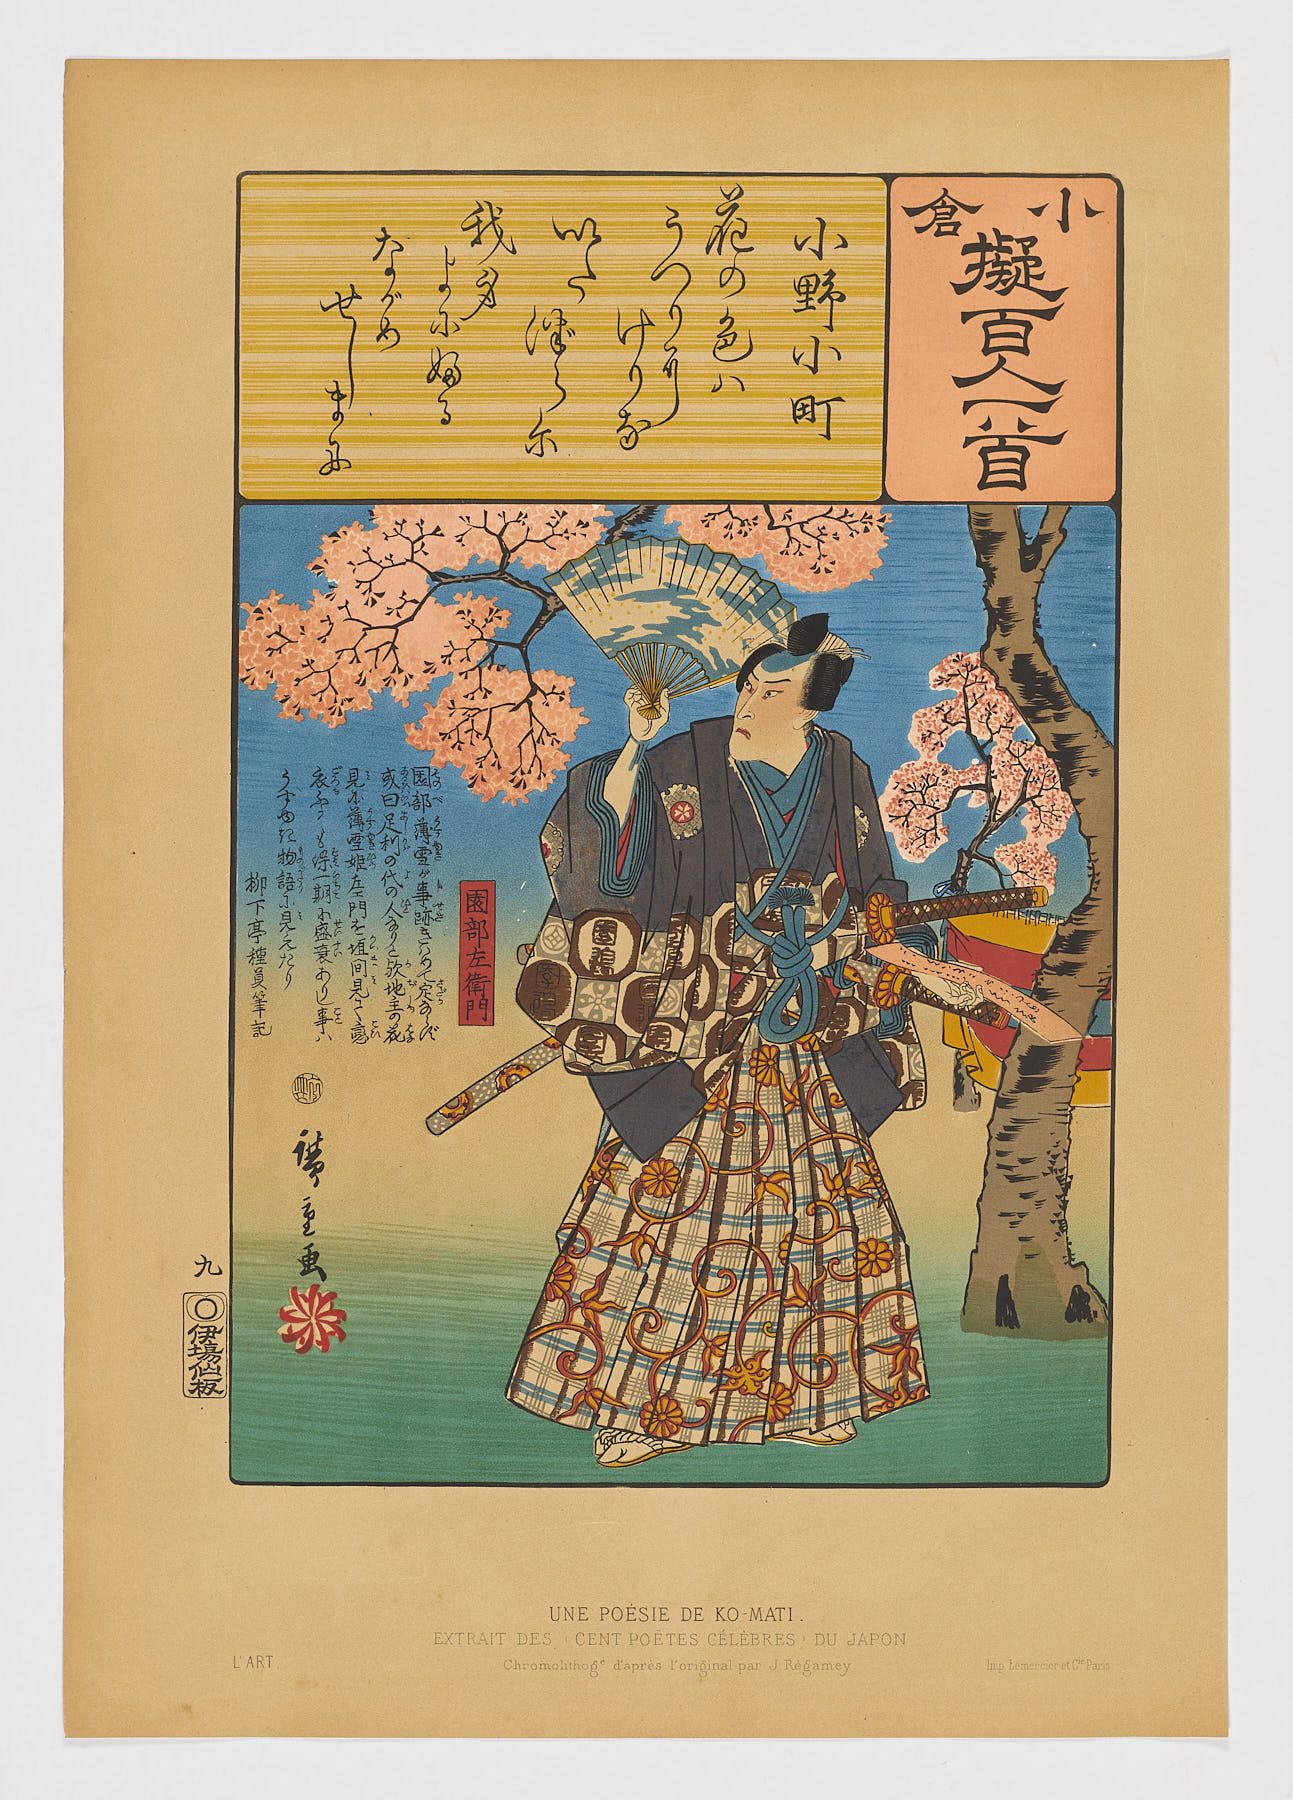 小倉
擬百人一首
小野小町
花の色ハ
うつりに
けりな
いた
津らに
我身
よにふる
ながめ
せしまに
園部左衛門
園部薄雪が事跡きハめて定かならず
或曰足利の代の人なりと欤地主の花
見に薄雪姫左衛門を垣間見て
うすゆき物語に見えたり
柳下亭種員筆記
廣重画
九
伊場仙板
UNE POÉSIE DE KO-MATI.
EXTRAIT DES (CENT POËTES CÉLÈBRES) DU JAPON
Chromolithogé d'après l'original par J. Régamey
L'ART.
Imp. Lemercier et Cie Paris